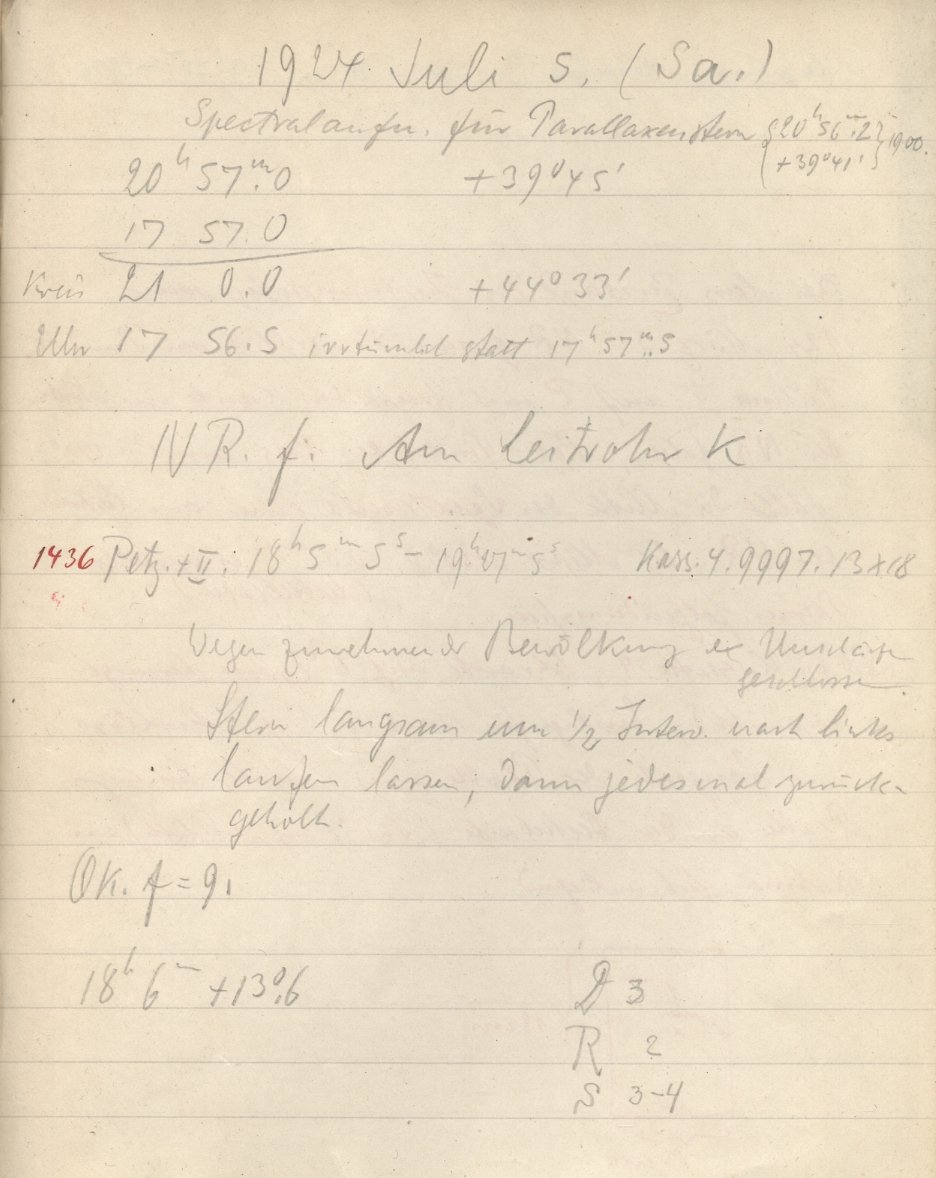 1924 Juli 5. (Sa.)
Spectralaufn. für Parallaxenstern {20ʰ 56ᵐ.2 +39°41'} 1900.
20ʰ 57ᵐ.0 +39°45'
17 57.0
Kreis 21 0.0 +44°33'
Uhr 17 56.5 irrtümlich statt 17ʰ57ᵐ.5
IV R. f: Am Leitrohr K
1436 Petz. + II: 18ʰ 5ᵐ 5ˢ - 19ʰ 47ᵐ 5ˢ Kass. 4. 9997. 13x18
Wegen zunehmender Bewölkung
geschlossen.
Stern langsam um 1/2 Interv. nach links
laufen lassen, dann jedesmal zurück-
geholt.
Ok. f = 9.
18ʰ 6ᵐ +13°.6
D 3
R 2
S 3-4